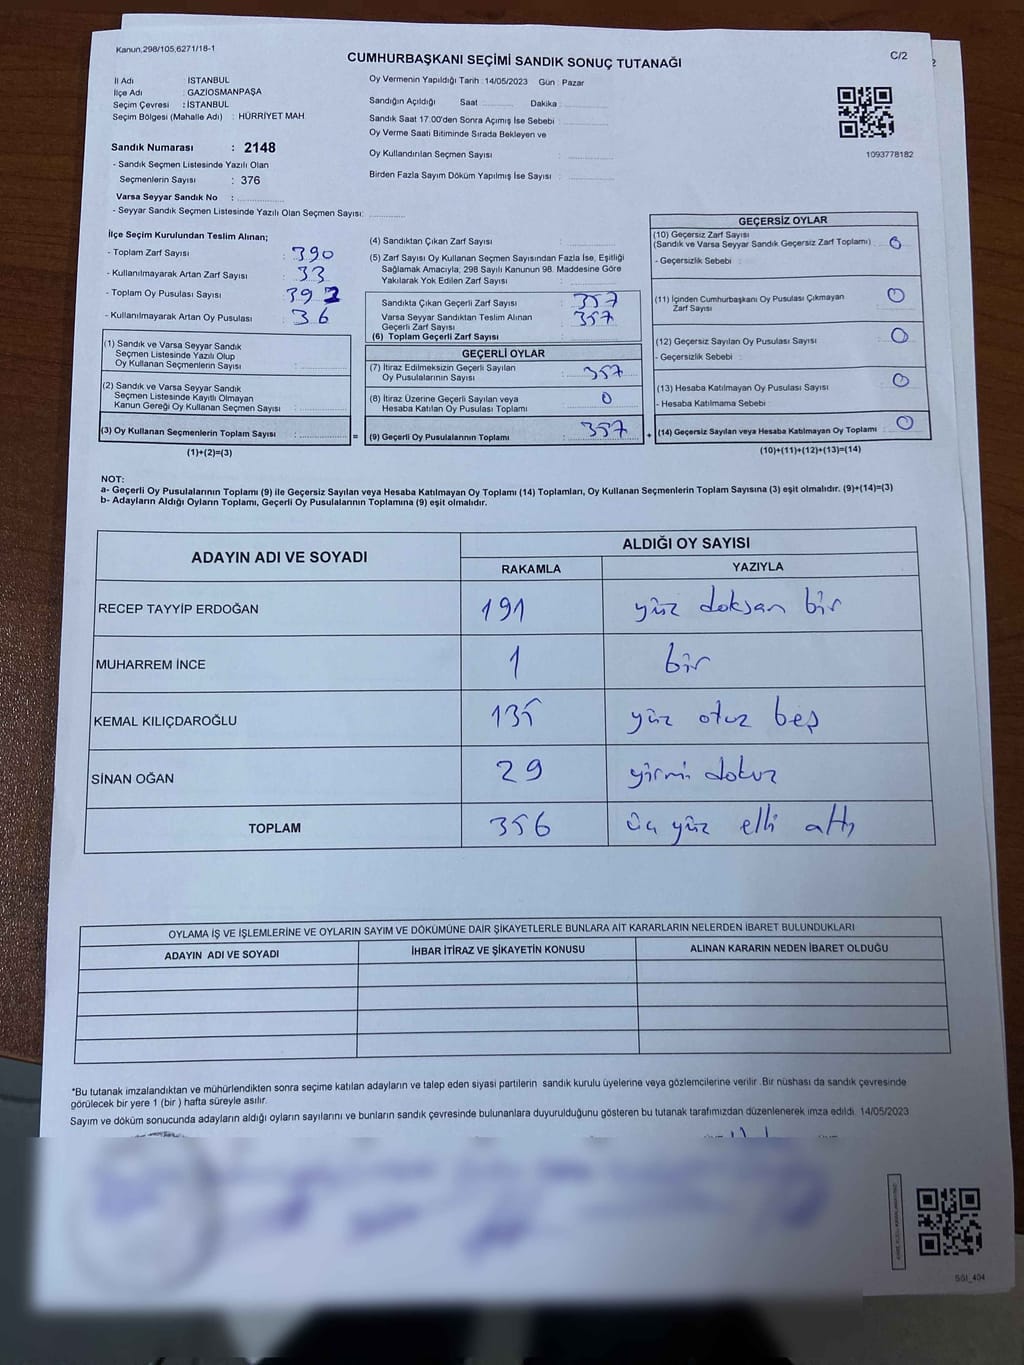 Kanun;298/105,6271/18-1
CUMHURBAŞKANI SEÇİMİ SANDIK SONUÇ TUTANAĞI
C/2
2
İl Adı : İSTANBUL
İlçe Adı : GAZİOSMANPAŞA
Seçim Çevresi : İSTANBUL
Seçim Bölgesi (Mahalle Adı) : HÜRRİYET MAH.
Oy Vermenin Yapıldığı Tarih : 14/05/2023 Gün : Pazar
Sandığın Açıldığı Saat ............ Dakika : ............
Sandık Saat 17:00'den Sonra Açımış İse Sebebi : ............
Oy Verme Saati Bitiminde Sırada Bekleyen ve
Oy Kullandırılan Seçmen Sayısı : ............
Birden Fazla Sayım Döküm Yapılmış İse Sayısı : ............
1093778182
Sandık Numarası : 2148
- Sandık Seçmen Listesinde Yazılı Olan
Seçmenlerin Sayısı : 376
Varsa Seyyar Sandık No : ............
- Seyyar Sandık Seçmen Listesinde Yazılı Olan Seçmen Sayısı: ............
İlçe Seçim Kurulundan Teslim Alınan;
- Toplam Zarf Sayısı : 390
- Kullanılmayarak Artan Zarf Sayısı : 33
- Toplam Oy Pusulası Sayısı : 392
- Kullanılmayarak Artan Oy Pusulası : 36
(1) Sandık ve Varsa Seyyar Sandık
Seçmen Listesinde Yazılı Olup
Oy Kullanan Seçmenlerin Sayısı : ............
(2) Sandık ve Varsa Seyyar Sandık
Seçmen Listesinde Kayıtlı Olmayan
Kanun Gereği Oy Kullanan Seçmen Sayısı : ............
(3) Oy Kullanan Seçmenlerin Toplam Sayısı : ............
(1)+(2)=(3)
=
(4) Sandıktan Çıkan Zarf Sayısı : ............
(5) Zarf Sayısı Oy Kullanan Seçmen Sayısından Fazla İse, Eşitliği
Sağlamak Amacıyla; 298 Sayılı Kanunun 98. Maddesine Göre
Yakılarak Yok Edilen Zarf Sayısı : ............
Sandıkta Çıkan Geçerli Zarf Sayısı : 357
Varsa Seyyar Sandıktan Teslim Alınan
Geçerli Zarf Sayısı : 357
(6) Toplam Geçerli Zarf Sayısı :
GEÇERLİ OYLAR
(7) İtiraz Edilmeksizin Geçerli Sayılan
Oy Pusulalarının Sayısı : 357
(8) İtiraz Üzerine Geçerli Sayılan veya
Hesaba Katılan Oy Pusulası Toplamı : 0
(9) Geçerli Oy Pusulalarının Toplamı : 357
+
GEÇERSİZ OYLAR
(10) Geçersiz Zarf Sayısı
(Sandık ve Varsa Seyyar Sandık Geçersiz Zarf Toplamı) : 0
- Geçersizlik Sebebi :
(11) İçinden Cumhurbaşkanı Oy Pusulası Çıkmayan
Zarf Sayısı : 0
(12) Geçersiz Sayılan Oy Pusulası Sayısı : 0
- Geçersizlik Sebebi :
(13) Hesaba Katılmayan Oy Pusulası Sayısı : 0
- Hesaba Katılmama Sebebi :
(14) Geçersiz Sayılan veya Hesaba Katılmayan Oy Toplamı : 0
(10)+(11)+(12)+(13)=(14)
NOT:
a- Geçerli Oy Pusulalarının Toplamı (9) ile Geçersiz Sayılan veya Hesaba Katılmayan Oy Toplamı (14) Toplamları, Oy Kullanan Seçmenlerin Toplam Sayısına (3) eşit olmalıdır. (9)+(14)=(3)
b- Adayların Aldığı Oyların Toplamı, Geçerli Oy Pusulalarının Toplamına (9) eşit olmalıdır.
ADAYIN ADI VE SOYADI ALDIĞI OY SAYISI
RAKAMLA YAZIYLA
RECEP TAYYİP ERDOĞAN 191 yüz doksan bir
MUHARREM İNCE 1 bir
KEMAL KILIÇDAROĞLU 135 yüz otuz beş
SİNAN OĞAN 29 yirmi dokuz
TOPLAM 356 üç yüz elli altı
OYLAMA İŞ VE İŞLEMLERİNE VE OYLARIN SAYIM VE DÖKÜMÜNE DAİR ŞİKAYETLERLE BUNLARA AİT KARARLARIN NELERDEN İBARET BULUNDUKLARI
ADAYIN ADI VE SOYADI İHBAR İTİRAZ VE ŞİKAYETİN KONUSU ALINAN KARARIN NEDEN İBARET OLDUĞU
*Bu tutanak imzalandıktan ve mühürlendikten sonra seçime katılan adayların ve talep eden siyasi partilerin sandık kurulu üyelerine veya gözlemcilerine verilir. Bir nüshası da sandık çevresinde
görülecek bir yere 1 (bir ) hafta süreyle asılır.
Sayım ve döküm sonucunda adayların aldığı oyların sayılarını ve bunların sandık çevresinde bulunanlara duyurulduğunu gösteren bu tutanak tarafımızdan düzenlenerek imza edildi. 14/05/2023
SGI_404